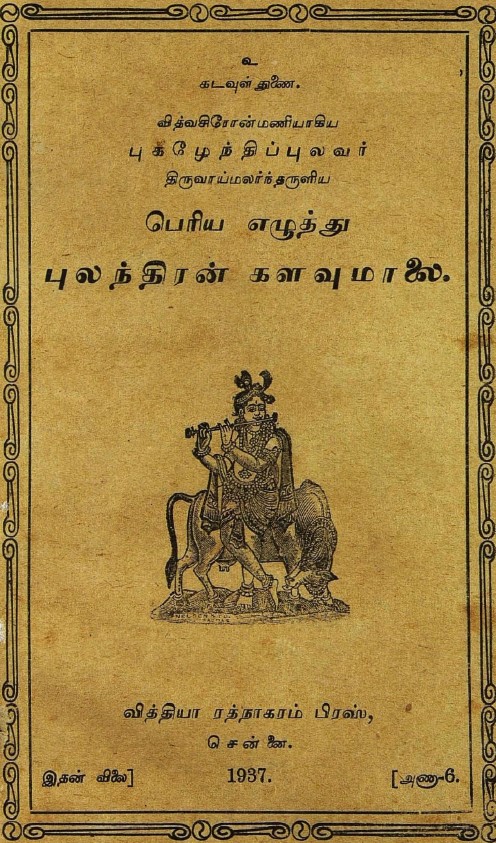 உ
கடவுள் துணை.
வித்வசிரோன்மணியாகிய
புகழேந்திப்புலவர்
திருவாய்மலர்ந்தருளிய
பெரிய எழுத்து
புலந்திரன் களவுமாலை.
வித்தியா ரத்நாகரம் பிரஸ்,
சென்னை.
இதன் விலை] 1937. [அணா-6.